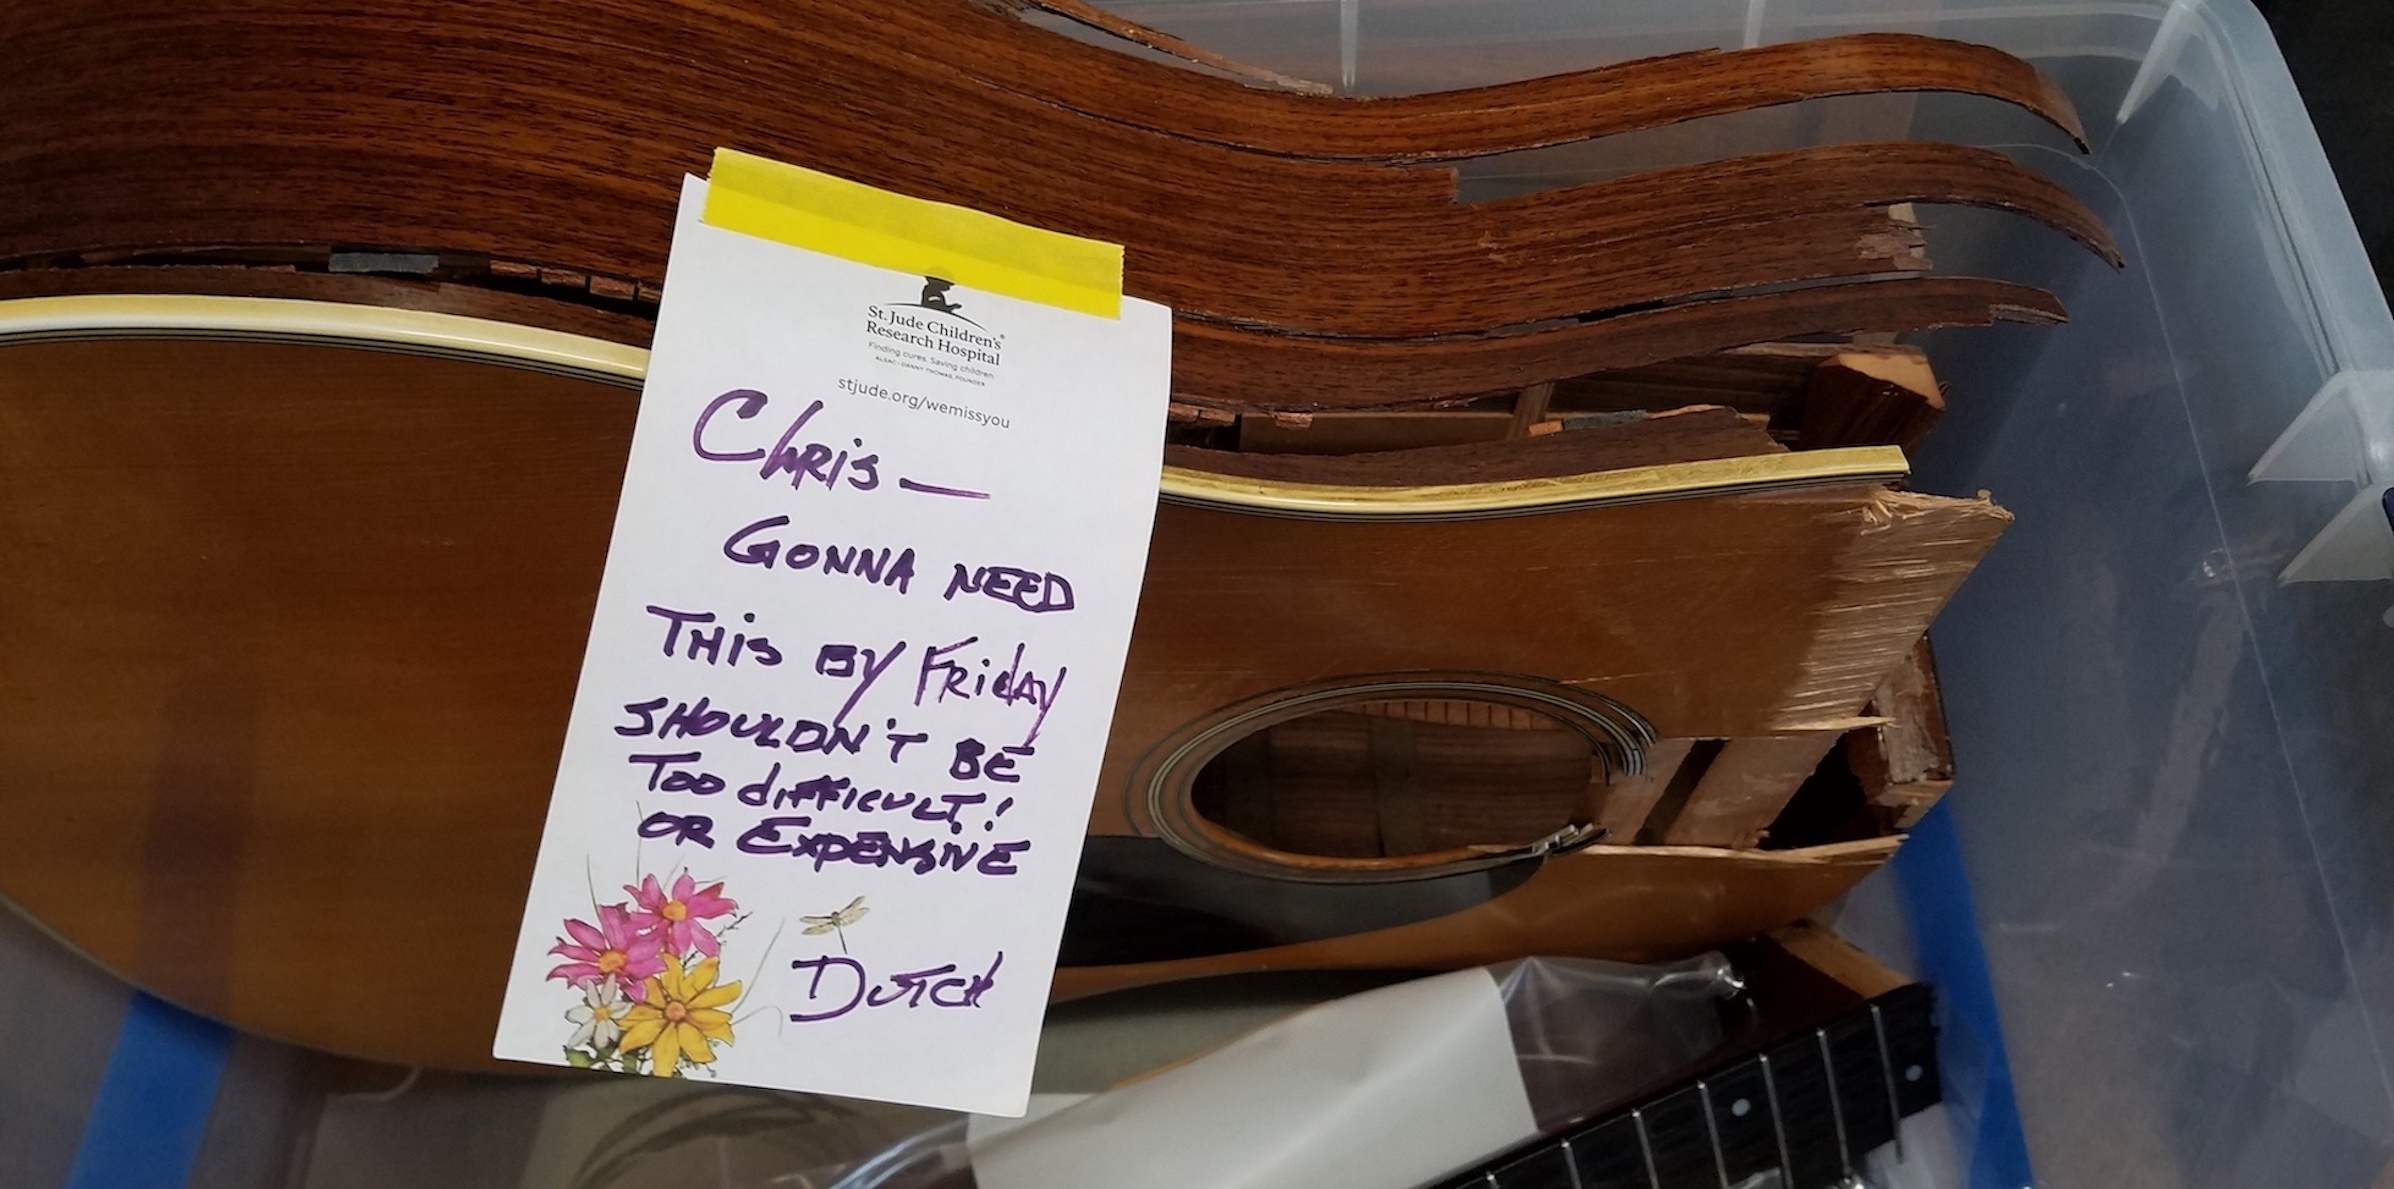 St. Jude Children's®
Research Hospital
Finding cures. Saving children.
ALSAC • DANNY THOMAS, FOUNDER
stjude.org/wemissyou
Chris —
GONNA NEED
THIS BY FRIDAY
SHOULDN'T BE
TOO difficult!
OR EXPENSIVE
DUTCH